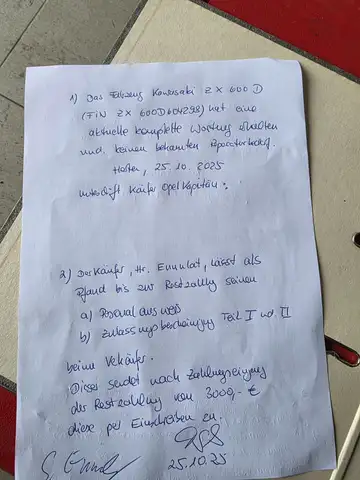 1) Das Fahrzeug Kawasaki ZX 600 D
(FIN ZX 600D604298) hat eine
aktuelle komplette Wartung erhalten
und keinen bekannten Reparaturbedarf.
Herten, 25.10.2025
Unterschrift Käufer
2) Der Käufer, Hr. Ennulat, lässt als
Pfand bis zur Restzahlung seinen
a) Personalausweis
b) Zulassungsbescheinigung Teil I und II
beim Verkäufer.
Dieser sendet nach Zahlungseingang
der Restzahlung von 3000,- €
diese per Einschreiben zu.
25.10.25